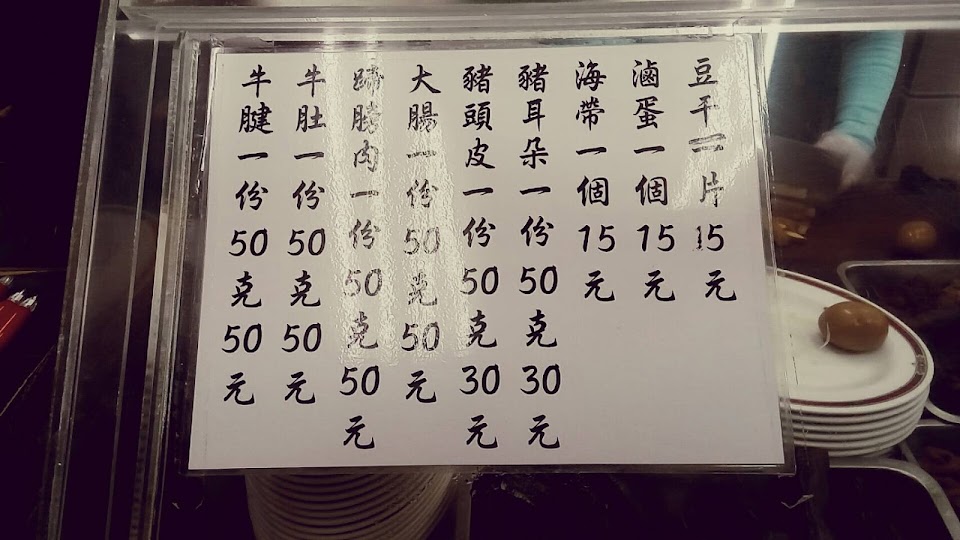 豆干一片15元
滷蛋一個15元
海帶一個15元
豬耳朵一份50克30元
豬頭皮一份50克30元
大腸一份50克50元
蹄膀肉一份50克50元
牛肚一份50克50元
牛腱一份50克50元